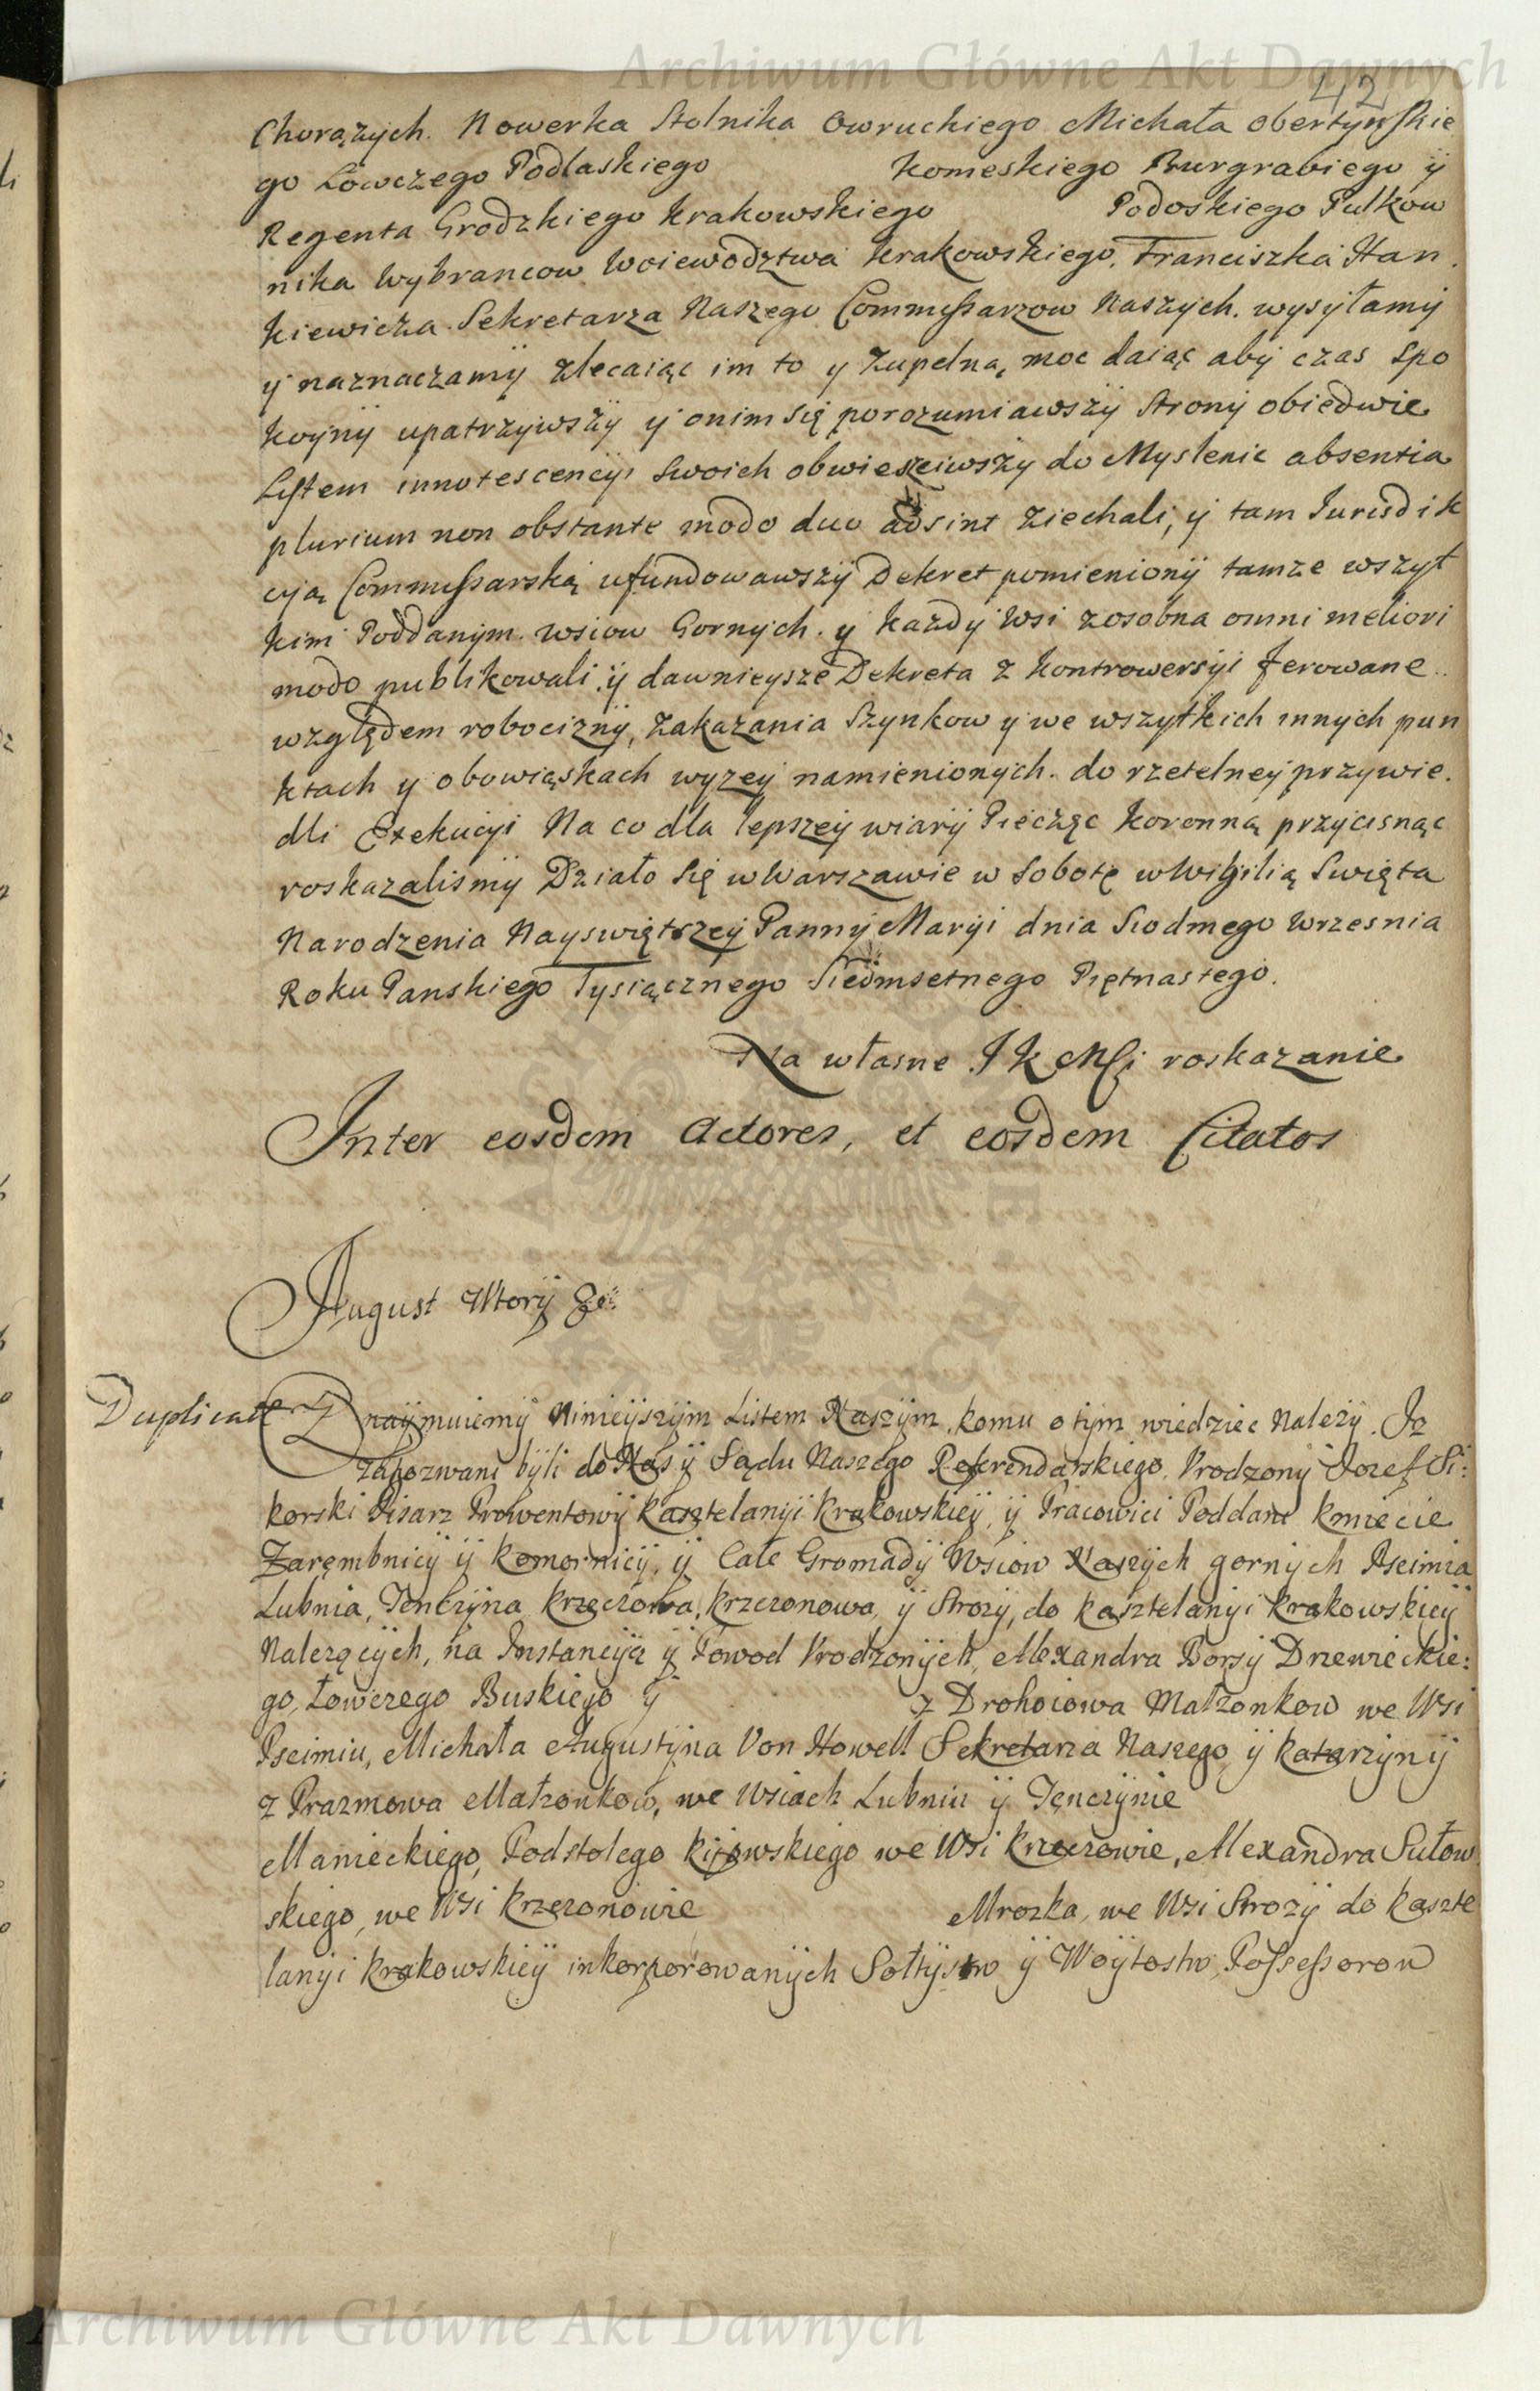 Archiwum Główne Akt Dawnych
42
Chorązych. Nowerka Stolnika Owruckiego Michała Obertynskie
go Łowczego Podlaskiego Komeskiego Burgrabiego ÿ
Regenta Grodzkiego Krakowskiego Podoskiego Pułkow
nika Wybrancow Woiewodztwa Krakowskiego, Franciszka Han
kiewicza Sekretarza Naszego Commissarzow Naszych. wysyłamÿ
ÿ naznaczamÿ zlecaiąc im to y zupełną moc daiąc abÿ czas spo
koynÿ upatrzÿwszÿ ÿ onim się porozumiawszÿ Stronÿ obiedwie
Listem innotescencÿi Swoich obwiesciwszy do Myslenic absentia
plurium non obstante modo duo adsint ziechali, ÿ tam Iurisdik
cyią Commissarską ufundowawszÿ Dekret pomienionÿ tamze wszyt
kim Poddanÿm wsiow Gornych. ÿ kazdy Wsi zosobna omni meliori
modo publikowali, ÿ dawnieysze Dekreta z kontrowersÿi ferowane
względem robociznÿ, zakazania Szynkow ÿ we wszytkich innych pun
ktach y obowiąskach wyzeÿ namienionych. do rzetelneÿ przywie.
dli Exekucyi Na co dla lepszeÿ wiarÿ Pieczęc Koronną przycisnąc
roskazalismÿ Działo Się w Warszawie w Sobotę w Wigilią Swięta
Narodzenia Nayswiętszeÿ Pannÿ Maryi dnia Siodmego Wrzesnia
Roku Panskiego Tysiącznego Siedmsetnego Piętnastego.
Na własne J K Msci roskazanie
Inter eosdem Actores, et eosdem Citatos
August Wtorÿ &c:
Duplicate
Znaÿmuiemÿ Ninieÿszÿm Listem Naszÿm, komu o tÿm wiedziec Nalezÿ. Iz
zapozwani bÿli do Nas ÿ Sądu Naszego Referendarskiego, Vrodzony Jozef Si:
korski Pisarz Prowentowÿ Kasztelanÿi Krakowskieÿ, ÿ Pracowici Poddani kmiecie
Zarębnicÿ ÿ komornicÿ, ÿ Całe Gromadÿ Wsiow Naszÿch gornÿch Pseimia
Lubnia, Tenczÿna, Krzeczowa, Krzczonowa, ÿ Strozÿ, do Kasztelanÿi Krakowskieÿ
Nalezącÿch, na Instancÿą ÿ Powod Vrodzonÿch, Alexandra Borsÿ Drzewieckie:
go, Łowczego Buskiego ÿ z Drohoiowa Małzonkow we Wsi
Pseimiu, Michała Augustÿna Von Howell Sekretarza Naszego, ÿ Katarzÿnÿ
z Prazmowa Małzonkow, we Wsiach Lubniu ÿ Tęnczÿnie
Manieckiego, Podstolego Kijowskiego we Wsi Krzeczowie, Alexandra Sułow
skiego, we Wsi Krzczonowie Mrozka, we Wsi Strozÿ do Kaszte
lanÿi Krakowskieÿ inkorporowanÿch Sołtÿstw ÿ Woÿtostw, Possessorow
Archiwum Główne Akt Dawnych